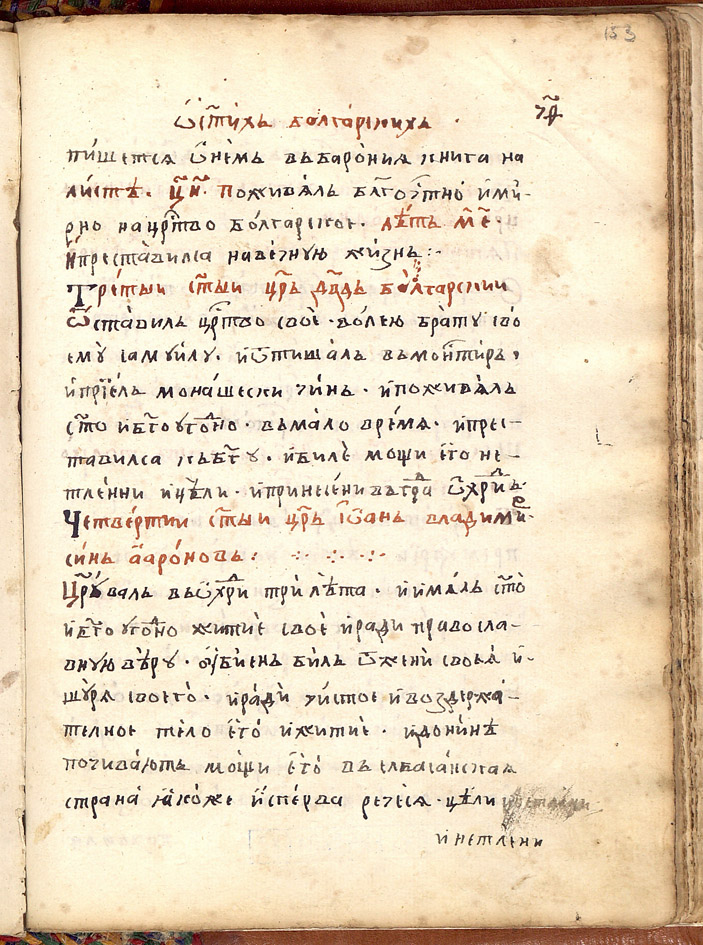 153
ѽ ст҃ихь болгарскихь
пи́шется ѽ немь въ баро́нїѧ книга на
листѣ. ц҃и. поживѧ́ль бл҃гоч҇тно и ми́-
рно на цр҇тво бо́лгарское. лѣ́ть м҃е.
и престави́лса на ве́чную жи́знь:-
Тре́тыи ст҃ыи цр҃ь дв҃дь бо́лгарскии
Ѽста́виль цр҇тво своѐ. во́лею бра́ту сво
ему̀ самуи́лу. и ѿтиша́ль въ мон҇тирь,
и прїе́ль мона́шески чи́нь. и поживѧ́ль
ст҃о и б҃гоуго́дно. въ ма́ло вре́мѧ. и прес-
тавилса къ б҃гу. и биле̏ мощи є҆го̀ не-
тле́нни и цѣ́ли. и принесе́ни въ гра́д ѽхри́д.
Четве́ртии ст҃ыи цр҃ь їѽа́нь владими́р.
си́нь а҆аро́новь:
Цр҇ува́ль въ ѽхри́д три лѣ́та. и има́ль ст҃о
и б҃гоуго́дно житиѐ своѐ и ради правосла-
вную вѣ́ру. ᲂу҆бие́нь биль ѿ жени̏ своеѧ̀ и
шу́рѧ своего̀. и ра́ди чи́стое и воздержа́-
телное те́ло є҆го̀ и житиѐ. и до ни́нѣ
почива́ють мо́щи є҆го̀ въ елбаса́нскаѧ
страна̀ ꙗ҆́коже и спе́рва рече́сѧ. цѣ́ли
и нетлени